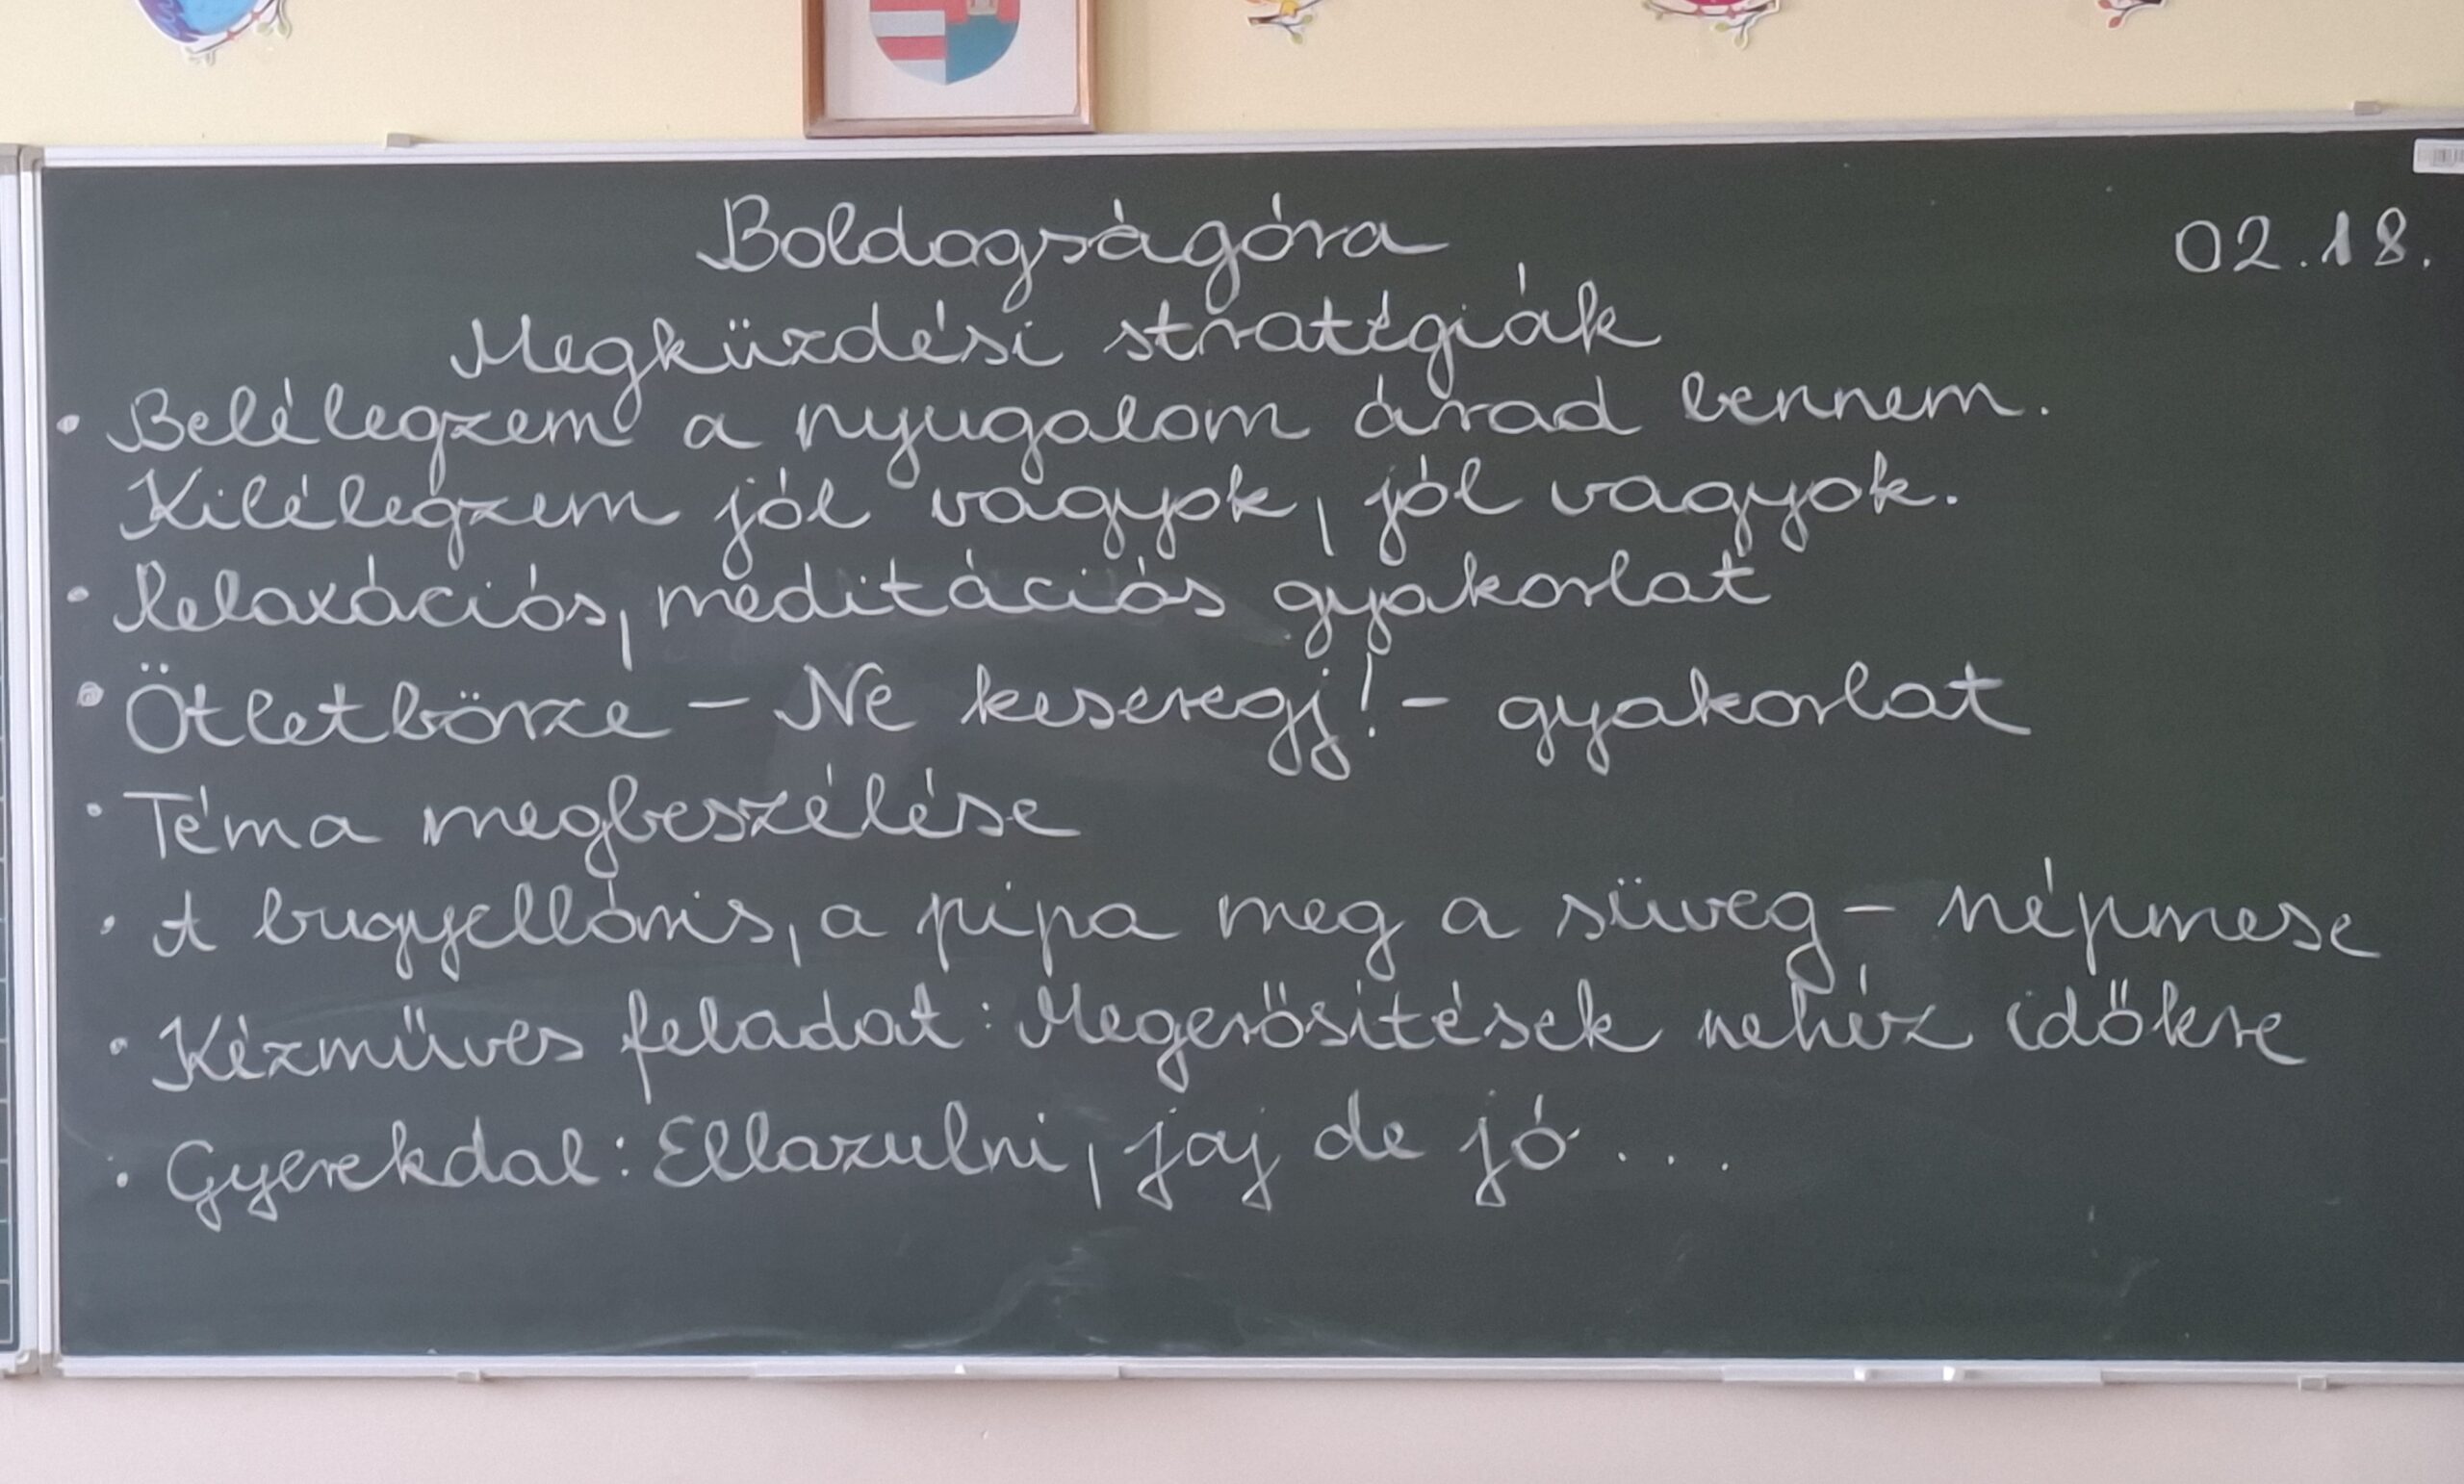 Boldogságóra
02.18.
Megküzdési stratégiák
• Belélegzem a nyugalom árad bennem.
Kilélegzem jól vagyok, jól vagyok.
• Relaxációs, meditációs gyakorlat
• Ötletbörze – Ne keseregj! – gyakorlat
• Téma megbeszélése
• A bugyelláris, a pipa meg a süveg – népmese
• Kézműves feladat: Megerősítések nehéz időkre
• Gyerekdal: Ellazulni, jaj de jó...